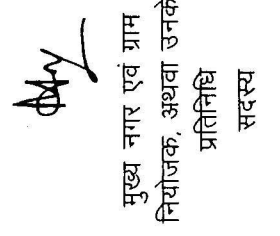 मुख्य नगर एवं ग्राम
नियोजक, अथवा उनके
प्रतिनिधि
सदस्य